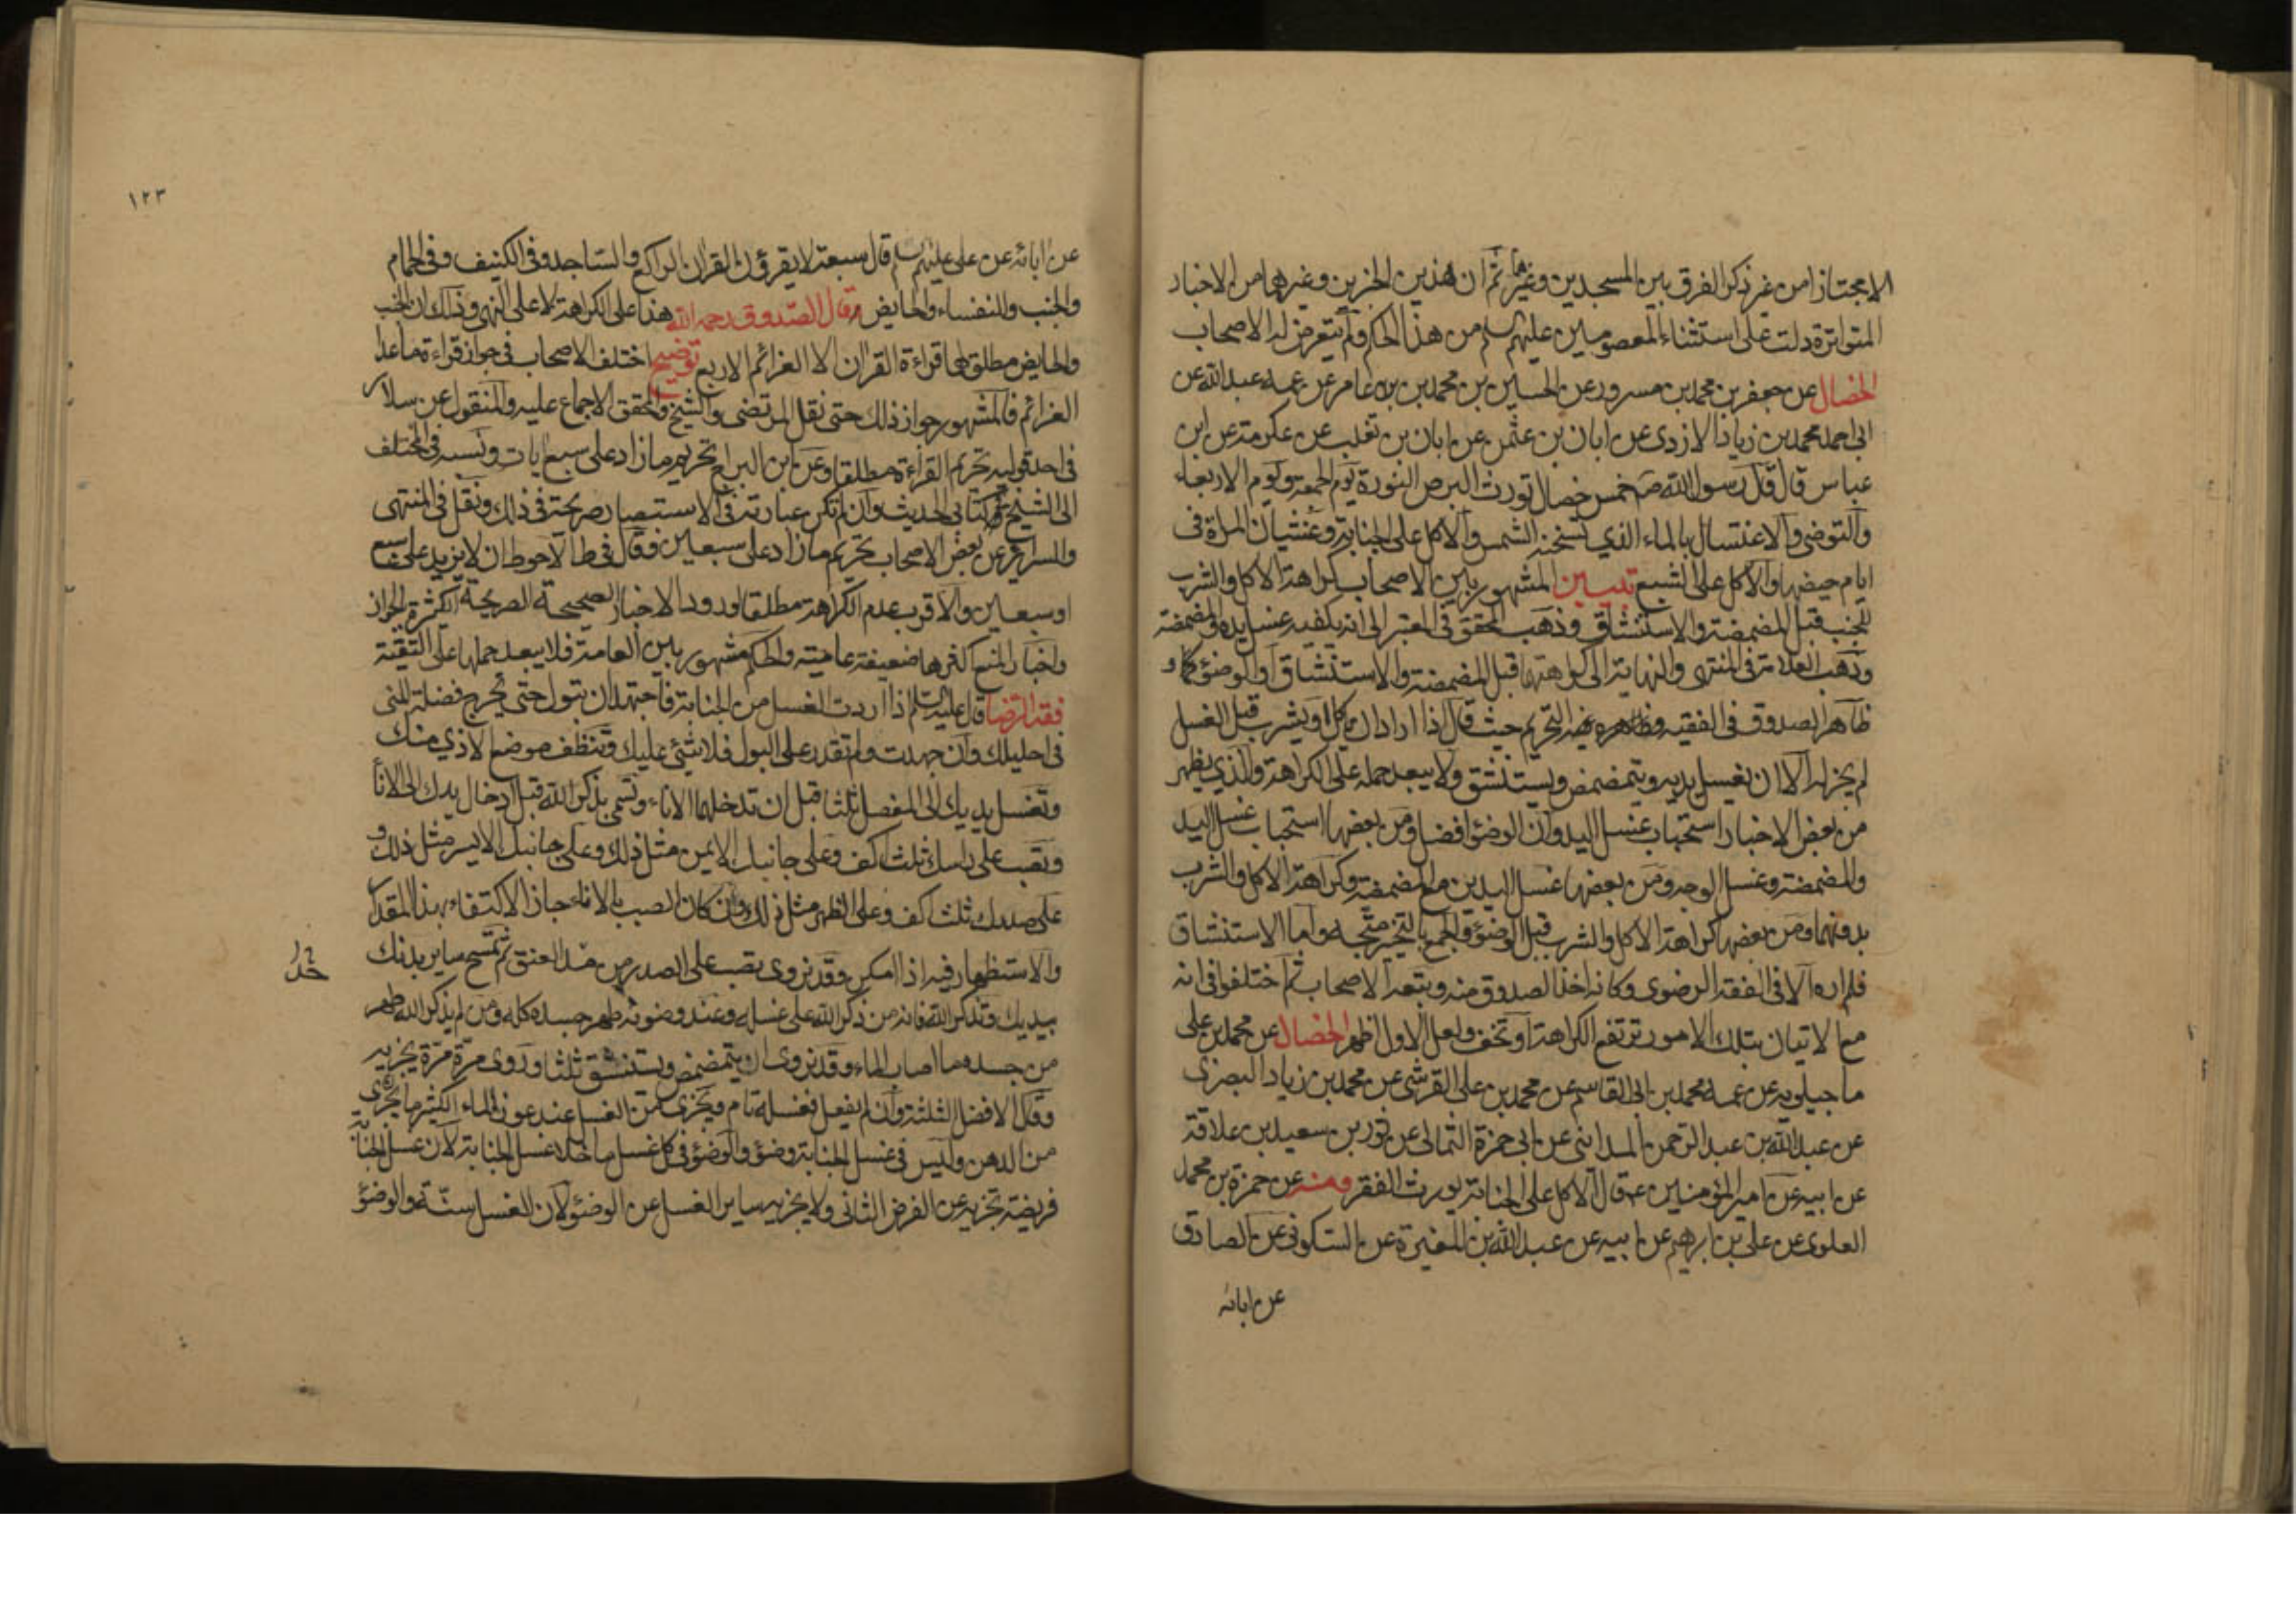 الا مجتازا من غير ذكر الفرق بين المسجدين وغيرهما ثم ان هذين الخبرين وغيرهما من الاخبار
المتواترة دلت على استثناء المعصومين عليهم السلام من هذا الحكم ولم يتعرض له الاصحاب
الخصال عن جعفر بن محمد بن مسرور عن الحسين بن محمد بن عامر عن عمه عبد الله عن
ابى احمد محمد بن زياد الازدى عن ابان بن عثمن عن ابان بن تغلب عن عكرمة عن ابن
عباس قال قال رسول الله ص خمس خصال تورث البرص النورة يوم الجمعة ويوم الاربعاء
والتوضى والاغتسال بالماء الذي تسخنه الشمس والاكل على الجنابة وغشيان المراة فى
ايام حيضها والاكل على الشبع تبيين المشهور بين الاصحاب كراهة الاكل والشرب
للجنب قبل المضمضة والاستنشاق وذهب المحقق فى المعتبر الى انه يكفيه غسل يده والمضمضة
وذهب العلامة فى المنتهى والنهاية الى كراهتهما قبل المضمضة والاستنشاق او الوضوء كما و
ظاهر الصدوق فى الفقيه وظاهره التحريم حيث قال اذا اراد ان ياكل او يشرب قبل الغسل
لم يجز له الا ان يغسل يديه ويتمضمض ويستنشق ولا يبعد حمله على الكراهة والذي يظهر
من بعض الاخبار استحباب غسل اليد وان الوضوء افضل ومن بعضها استحباب غسل اليد
والمضمضة وغسل الوجه ومن بعضها غسل اليدين مع المضمضة وكراهة الاكل والشرب
بدونهما ومن بعضها كراهة الاكل والشرب قبل الوضوء والجمع بالتخيير متجه واما الاستنشاق
فلم اره الا فى الفقه الرضوى وكانه اخذ الصدوق منه وتبعه الاصحاب ثم اختلفوا فى انه
مع الاتيان بتلك الامور ترتفع الكراهة او تخف ولعل الاول اظهر الخصال عن محمد بن على
ماجيلويه عن عمه محمد بن ابى القاسم عن محمد بن على القرشى عن محمد بن زياد البصرى
عن عبد الله بن عبد الرحمن المداينى عن ابى حمزة الثمالى عن ثور بن سعيد بن علاقة
عن ابيه عن امير المؤمنين ع قال الاكل على الجنابة يورث الفقر ومنه عن حمزة بن محمد
العلوى عن على بن ابرهيم عن ابيه عن عبد الله بن المغيرة عن السكونى عن الصادق
عن ابائه
١٢٣
عن ابائه عن على عليهم السلام قال سبعة لا يقرؤن القران الراكع والساجد وفى الكنيف وفى الحمام
والجنب والنفساء والحايض وقال الصدوق رحمه الله هذا على الكراهة لا على النهى وذلك ان الجنب
والحايض مطلق لهما قراءة القران الا العزائم الاربع توضيح اختلف الاصحاب فى جواز قراءة ما عدا
العزائم فالمشهور جواز ذلك حتى نقل المرتضى والشيخ والمحقق الاجماع عليه والمنقول عن سلار
فى احد قوليه تحريم القراءة مطلقا وعن ابن البراج تحريم ما زاد على سبع ايات ونسبه فى المختلف
الى الشيخ فى كتابى الحديث وان لم تكن عبارته فى الاستبصار صريحة فى ذلك ونقل فى المنتهى
والسراير عن بعض الاصحاب تحريم ما زاد على سبعين وقال فى ط الاحوط ان لا يزيد على سبع
او سبعين والاقرب عدم الكراهة مطلقا لورود الاخبار الصحيحة الصريحة الكثيرة بالجواز
واخبار المنع اكثرها ضعيفة عامية والحكم مشهور بين العامة فلا يبعد حملها على التقية
فقه الرضا قال عليه السلم اذا اردت الغسل من الجنابة فاجتهد ان تبول حتى تخرج فضلة المنى
فى احليلك وان جهدت ولم تقدر على البول فلا شئ عليك وتنظف موضع الاذى منك
وتغسل يديك الى المفصل ثلثا قبل ان تدخلهما الاناء وتسمى بذكر الله قبل ادخال يدك الى الانأ
وتصب على راسك ثلث اكف وعلى جانبك الايمن مثل ذلك وعلى جانبك الايسر مثل ذلك و
على صدرك ثلث اكف وعلى الظهر مثل ذلك وان كان الصب بالاناء جاز الاكتفاء بهذا المقدار
والاستظهار فيه اذا امكن وقد نروى تصب على الصدر من مد العنق ثم تمسح ساير بدنك
بيديك وتذكر الله فانه من ذكر الله على غسله وعند وضوئه طهر جسده كله ومن لم يذكر الله طهر
من جسده ما اصاب الماء وقد نروى ان يتمضمض ويستنشق ثلثا وروى مرة مرة يجزيه
وقال الافضل الثلثة وان لم يفعل فغسله تام ويجزى من الغسل عند عوز الماء الكثير ما يجزى
من الدهن وليس فى غسل الجنابة وضوء والوضوء فى كل غسل ما خلا غسل الجنابة لان غسل الجنابة
فريضة تجزيه عن الفرض الثانى ولا يجزيه ساير الغسل عن الوضوء لان الغسل سنة والوضوء